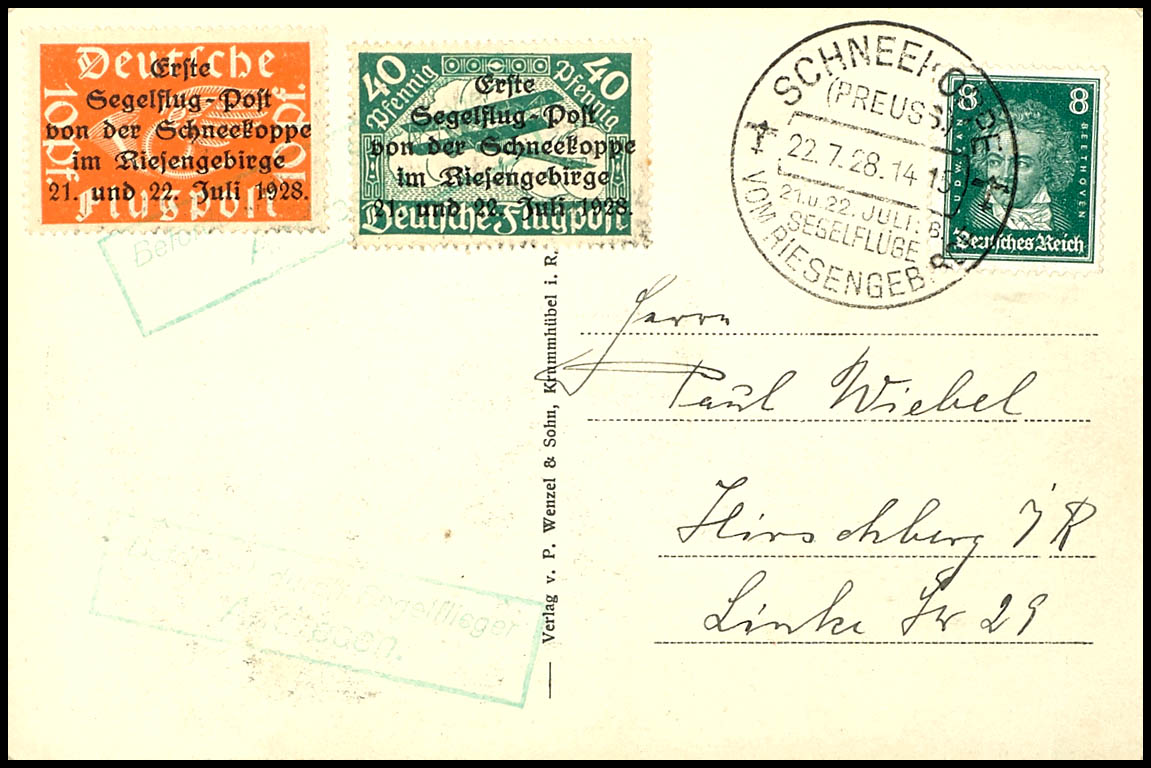 Deutsche
10 Pf. 10 Pf.
Flugpost
Erste
Segelflug-Post
von der Schneekoppe
im Riesengebirge
21. und 22. Juli 1928.
40 Pfennig 40 Pfennig
Deutsche Flugpost
Erste
Segelflug-Post
von der Schneekoppe
im Riesengebirge
21. und 22. Juli 1928.
SCHNEEKOPPE
(PREUSS)
22.7.28.14-15
21.u.22. JULI:
SEGELFLÜGE
VOM RIESENGEB.
8 8
LUDW. VAN BEETHOVEN
Deutsches Reich
Verlag v. P. Wenzel & Sohn, Krummhübel i. R.
Herrn
Paul Wiebel
Hirschberg i/R
Linke Str 29
durch Segelflieger